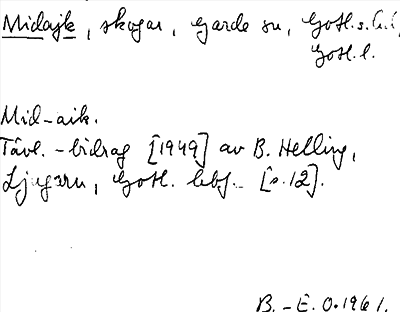 Midajk, skogar, Garde sn, Gotl. s. hd,
Gotl. l.
Mid-aik.
Tävl.-bidrag [1949] av B. Helling,
Ljugarn, Gotl. lbf. [s. 12].
B.-E. O. 1961.